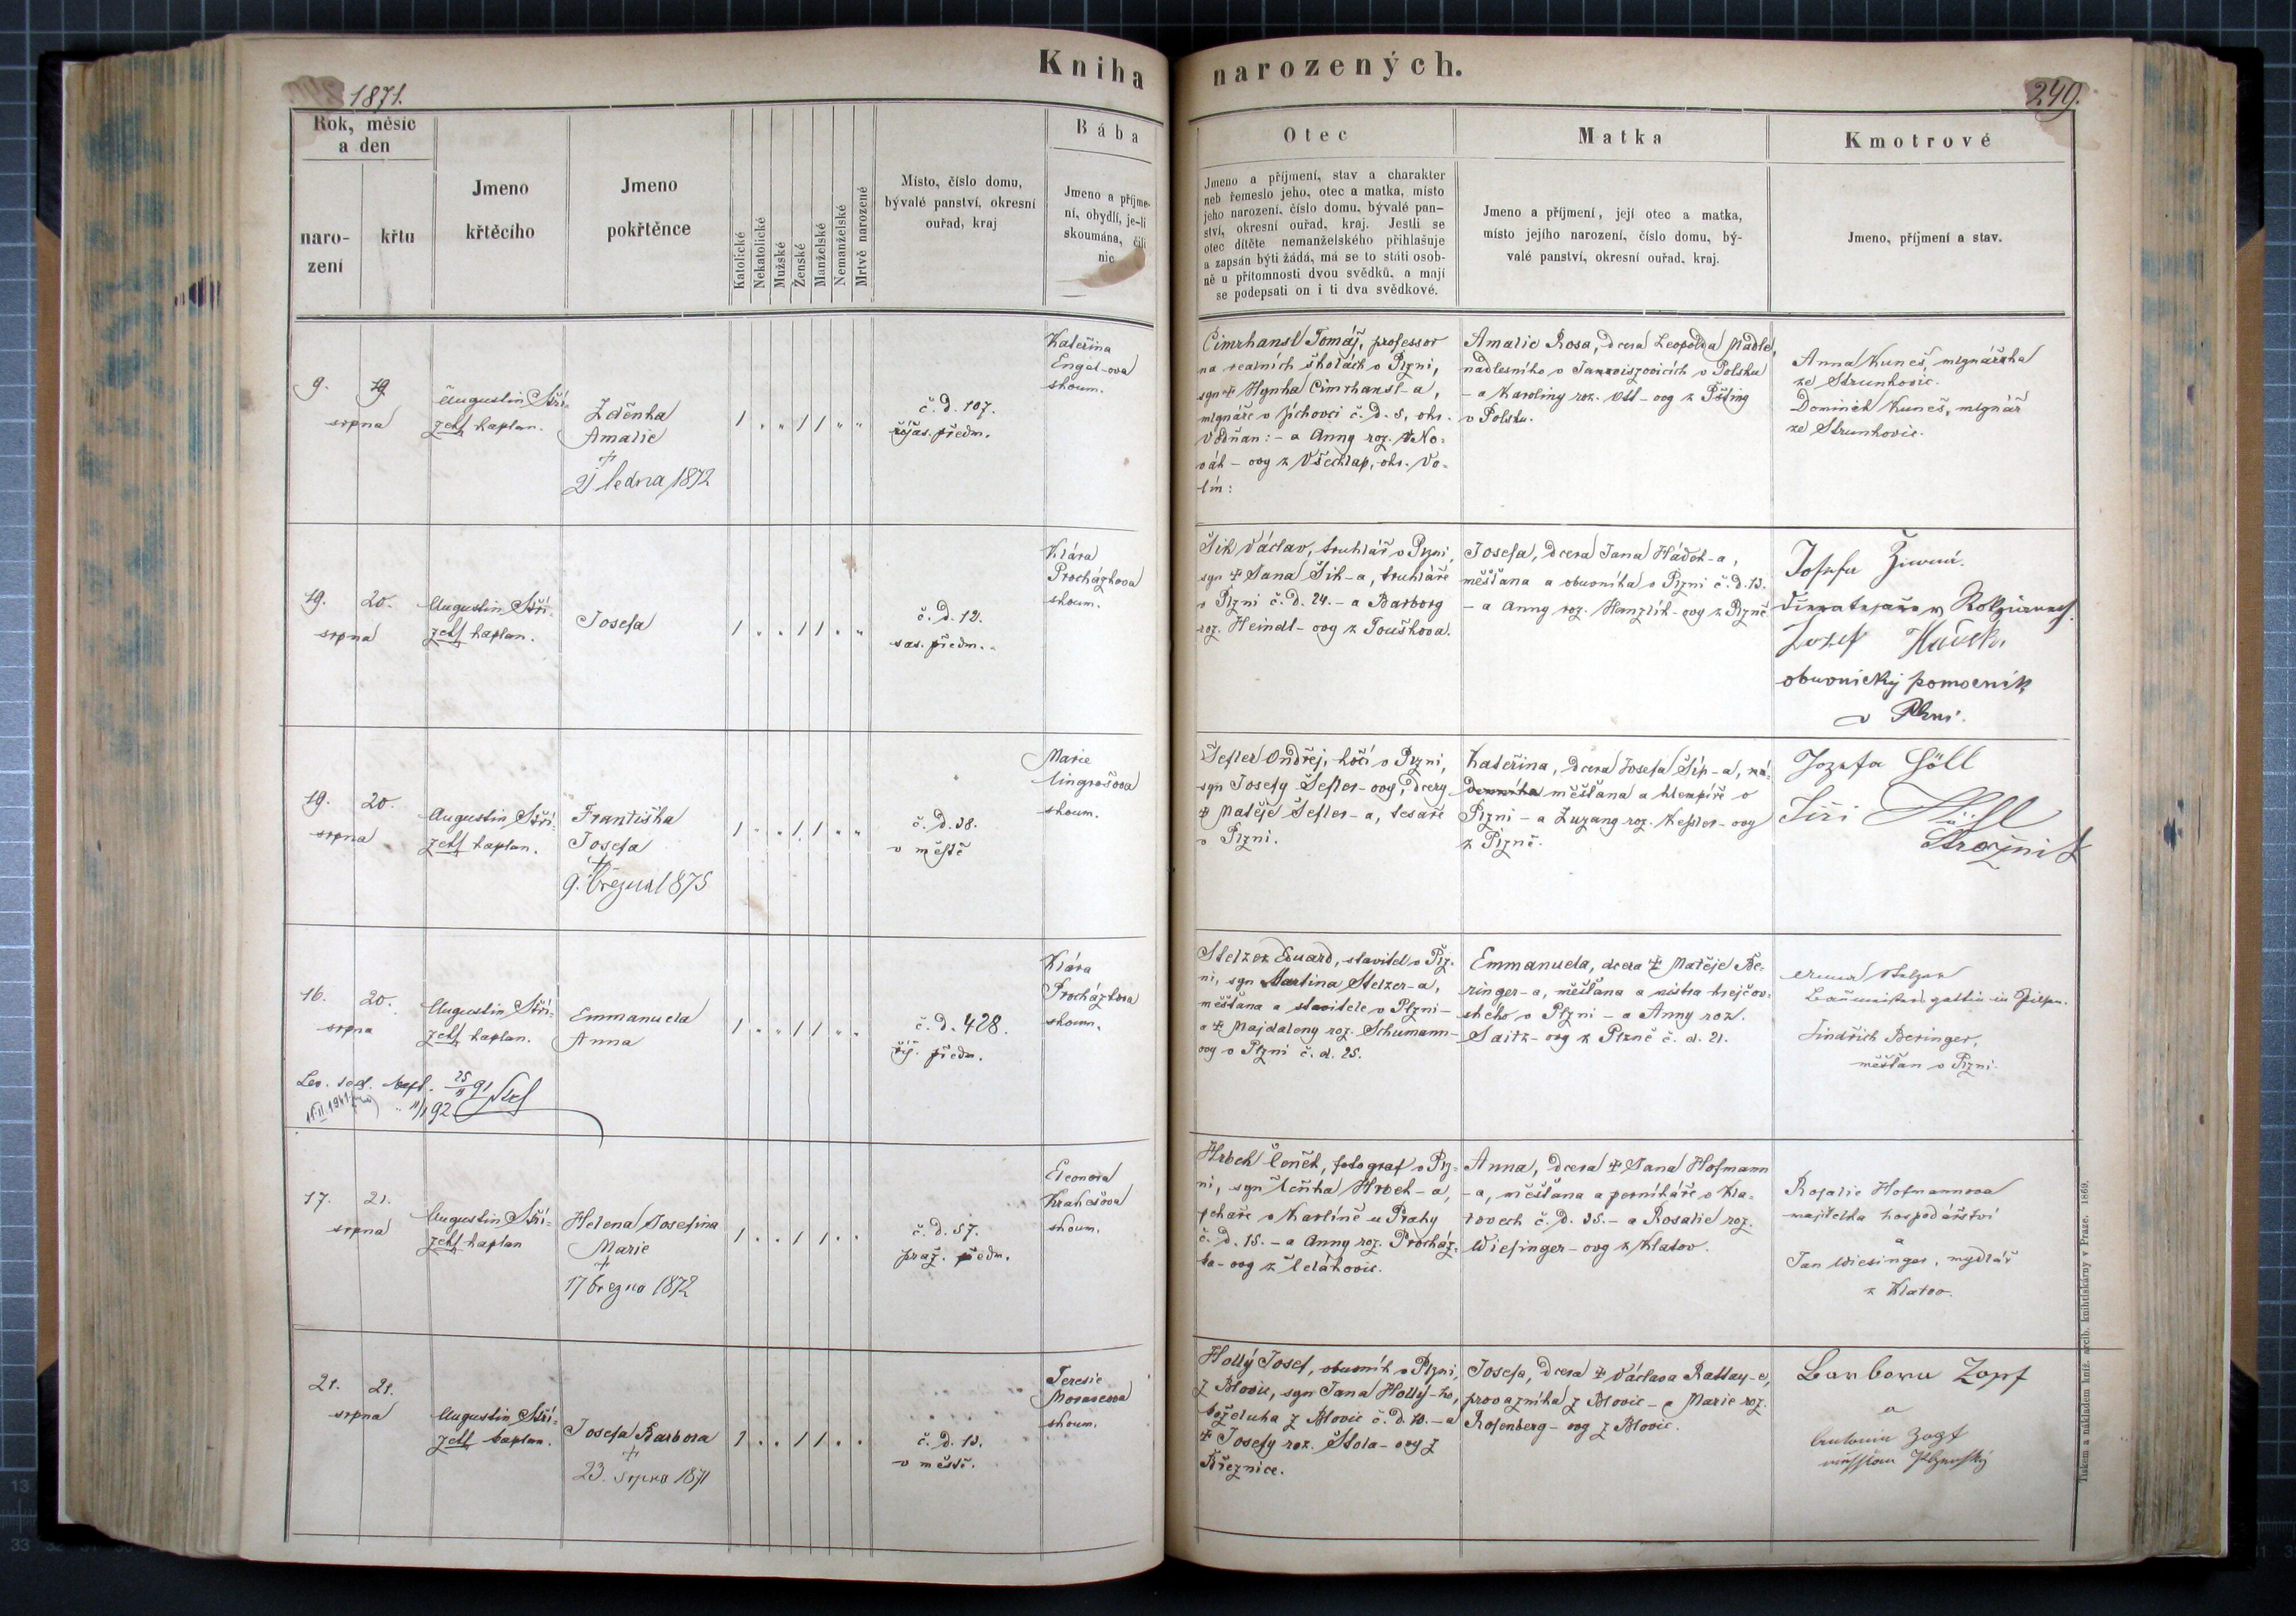 Kniha narozených.
1871.
249.
Rok, měsíc
a den
naro-
zení
křtu
Jmeno
křtěcího
Jmeno
pokřtěnce
Katolické
Nekatolické
Mužské
Ženské
Manželské
Nemanželské
Mrtvě narozené
Místo, číslo domu,
bývalé panství, okresní
ouřad, kraj
Bába
Jmeno a příjme-
ní, obydlí, je-li
skoumána, čili
nic
Otec
Jmeno a příjmení, stav a charakter
neb řemeslo jeho, otec a matka, místo
jeho narození, číslo domu, bývalé pan-
ství, okresní ouřad, kraj. Jestli se
otec dítěte nemanželského přihlašuje
a zapsán býti žádá, má se to státi osob-
ně u přítomnosti dvou svědků, a mají
se podepsati on i ti dva svědkové.
Matka
Jmeno a příjmení, její otec a matka,
místo jejího narození, číslo domu, bý-
valé panství, okresní ouřad, kraj.
Kmotrové
Jmeno, příjmení a stav.
9. 19.
srpna
Augustin Stří-
zek kaplan.
Zděnka
Amalie
+
21 ledna 1872
1 . „ 1 1 „ „
č. d. 107.
předm.
Kateřina
Engel-ova
skoum.
Cimrhansl Tomáš, professor
na realních školách v Plzni,
syn + Hynka Cimrhansl-a,
mlynáře v Jichovci č. d. 5, okr.
Vodňan: - a Anny roz. No-
vák-ovy z Všechlap, okr. Vo-
lín:
Amalie Rosa, dcera Leopolda Nadle,
nadlesního v v Polsku
- a Karoliny roz. Ott-ovy z
v Polsku.
Anna Kuneš, mlynářka
ze Strunkovic.
Dominik Kuneš, mlynář
ze Strunkovic.
19. 20.
srpna
Augustin Stří-
zek kaplan.
Josefa
1 . „ 1 1 . „
č. d. 12.
sas. předm.
Klára
Procházkova
skoum.
Šik Václav, truhlář v Plzni,
syn + Jana Šik-a, truhláře
v Plzni č. d. 24. - a Barbory
roz. Heindl-ovy z Touškova.
Josefa, dcera Jana Háček-a,
měšťana a obuvníka v Plzni č. d. 13.
- a Anny roz. Hanzlík-ovy z Plzně.
Josefa
Jozef Háček,
obuvnický pomocník
v Plzni.
19. 20.
srpna
Augustin Stří-
zek kaplan.
Františka
Josefa
+
9. března 1875
1 „ „ 1 1 „ „
č. d. 38.
v městě
Marie
Lingrošova
skoum.
Šefler Ondřej, kočí v Plzni,
syn Josefy Šefler-ovy, dcery
+ Matěje Šefler-a, tesaře
v Plzni.
Kateřina, dcera Josefa Šíp-a,
měšťana a klempíře v
Plzni - a Zuzany roz. Kesler-ovy
z Plzně.
Jozefa Höll
Jiří Höll
Strážník
16. 20.
srpna
Augustin Stří-
zek kaplan.
Emmanuela
Anna
1 . „ 1 1 „ „
č. d. 428.
říš. předm.
Klára
Procházkova
skoum.
11.II.1941
Stelzer Eduard, stavitel v Plz-
ni, syn Martina Stelzer-a,
měšťana a stavitele v Plzni -
a + Majdaleny roz. Schumann-
ovy v Plzni č. d. 25.
Emmanuela, dcera + Matěje Be-
ringer-a, měšťana a mistra krejčov-
ského v Plzni - a Anny roz.
Saitz-ovy z Plzně č. d. 21.
Anna Stelzer
Baumeisters gattin in Pilsen.
Jindřich Beringer,
měšťan v Plzni.
17. 21.
srpna
Augustin Stří-
zek kaplan
Helena Josefina
Marie
+
17 března 1872
1 . . 1 1 . .
č. d. 57.
praž. předm.
Eleonora
Krakešova
skoum.
Hrbek Čeněk, fotograf v Plz-
ni, syn Čeňka Hrbek-a,
pekaře v Karlíně u Prahy
č. d. 15. - a Anny roz. Procház-
ka-ovy z Čelákovic.
Anna, dcera + Jana Hofmann
-a, měšťana a perníkáře v Kla-
tovech č. d. 35. - a Rosalie roz.
Wiesinger-ovy z Klatov.
Rosalie Hofmannova
majitelka hospodářství
a
Jan Wiesinger, mydlář
z Klatov.
21. 21.
srpna
Augustin Stří-
zek kaplan.
Josefa Barbora
+
23. srpna 1871
1 . . 1 1 . .
č. d. 13.
v městě.
Teresie
Moravcova
skoum.
Hollý Josef, obuvník v Plzni,
z Blovic, syn Jana Hollý-ho,
koželuha z Blovic č. d. 10. - a
+ Josefy roz. Štola-ovy z
Březnice.
Josefa, dcera + Václava Rattay-e,
provazníka z Blovic - a Marie roz.
Rosenberg-ovy z Blovic.
Barbara Zopf
a
Antonín Zopf
měšťan Plzeňský
Tiskem a nákladem kníž. arcib. knihtiskárny v Praze. 1869.